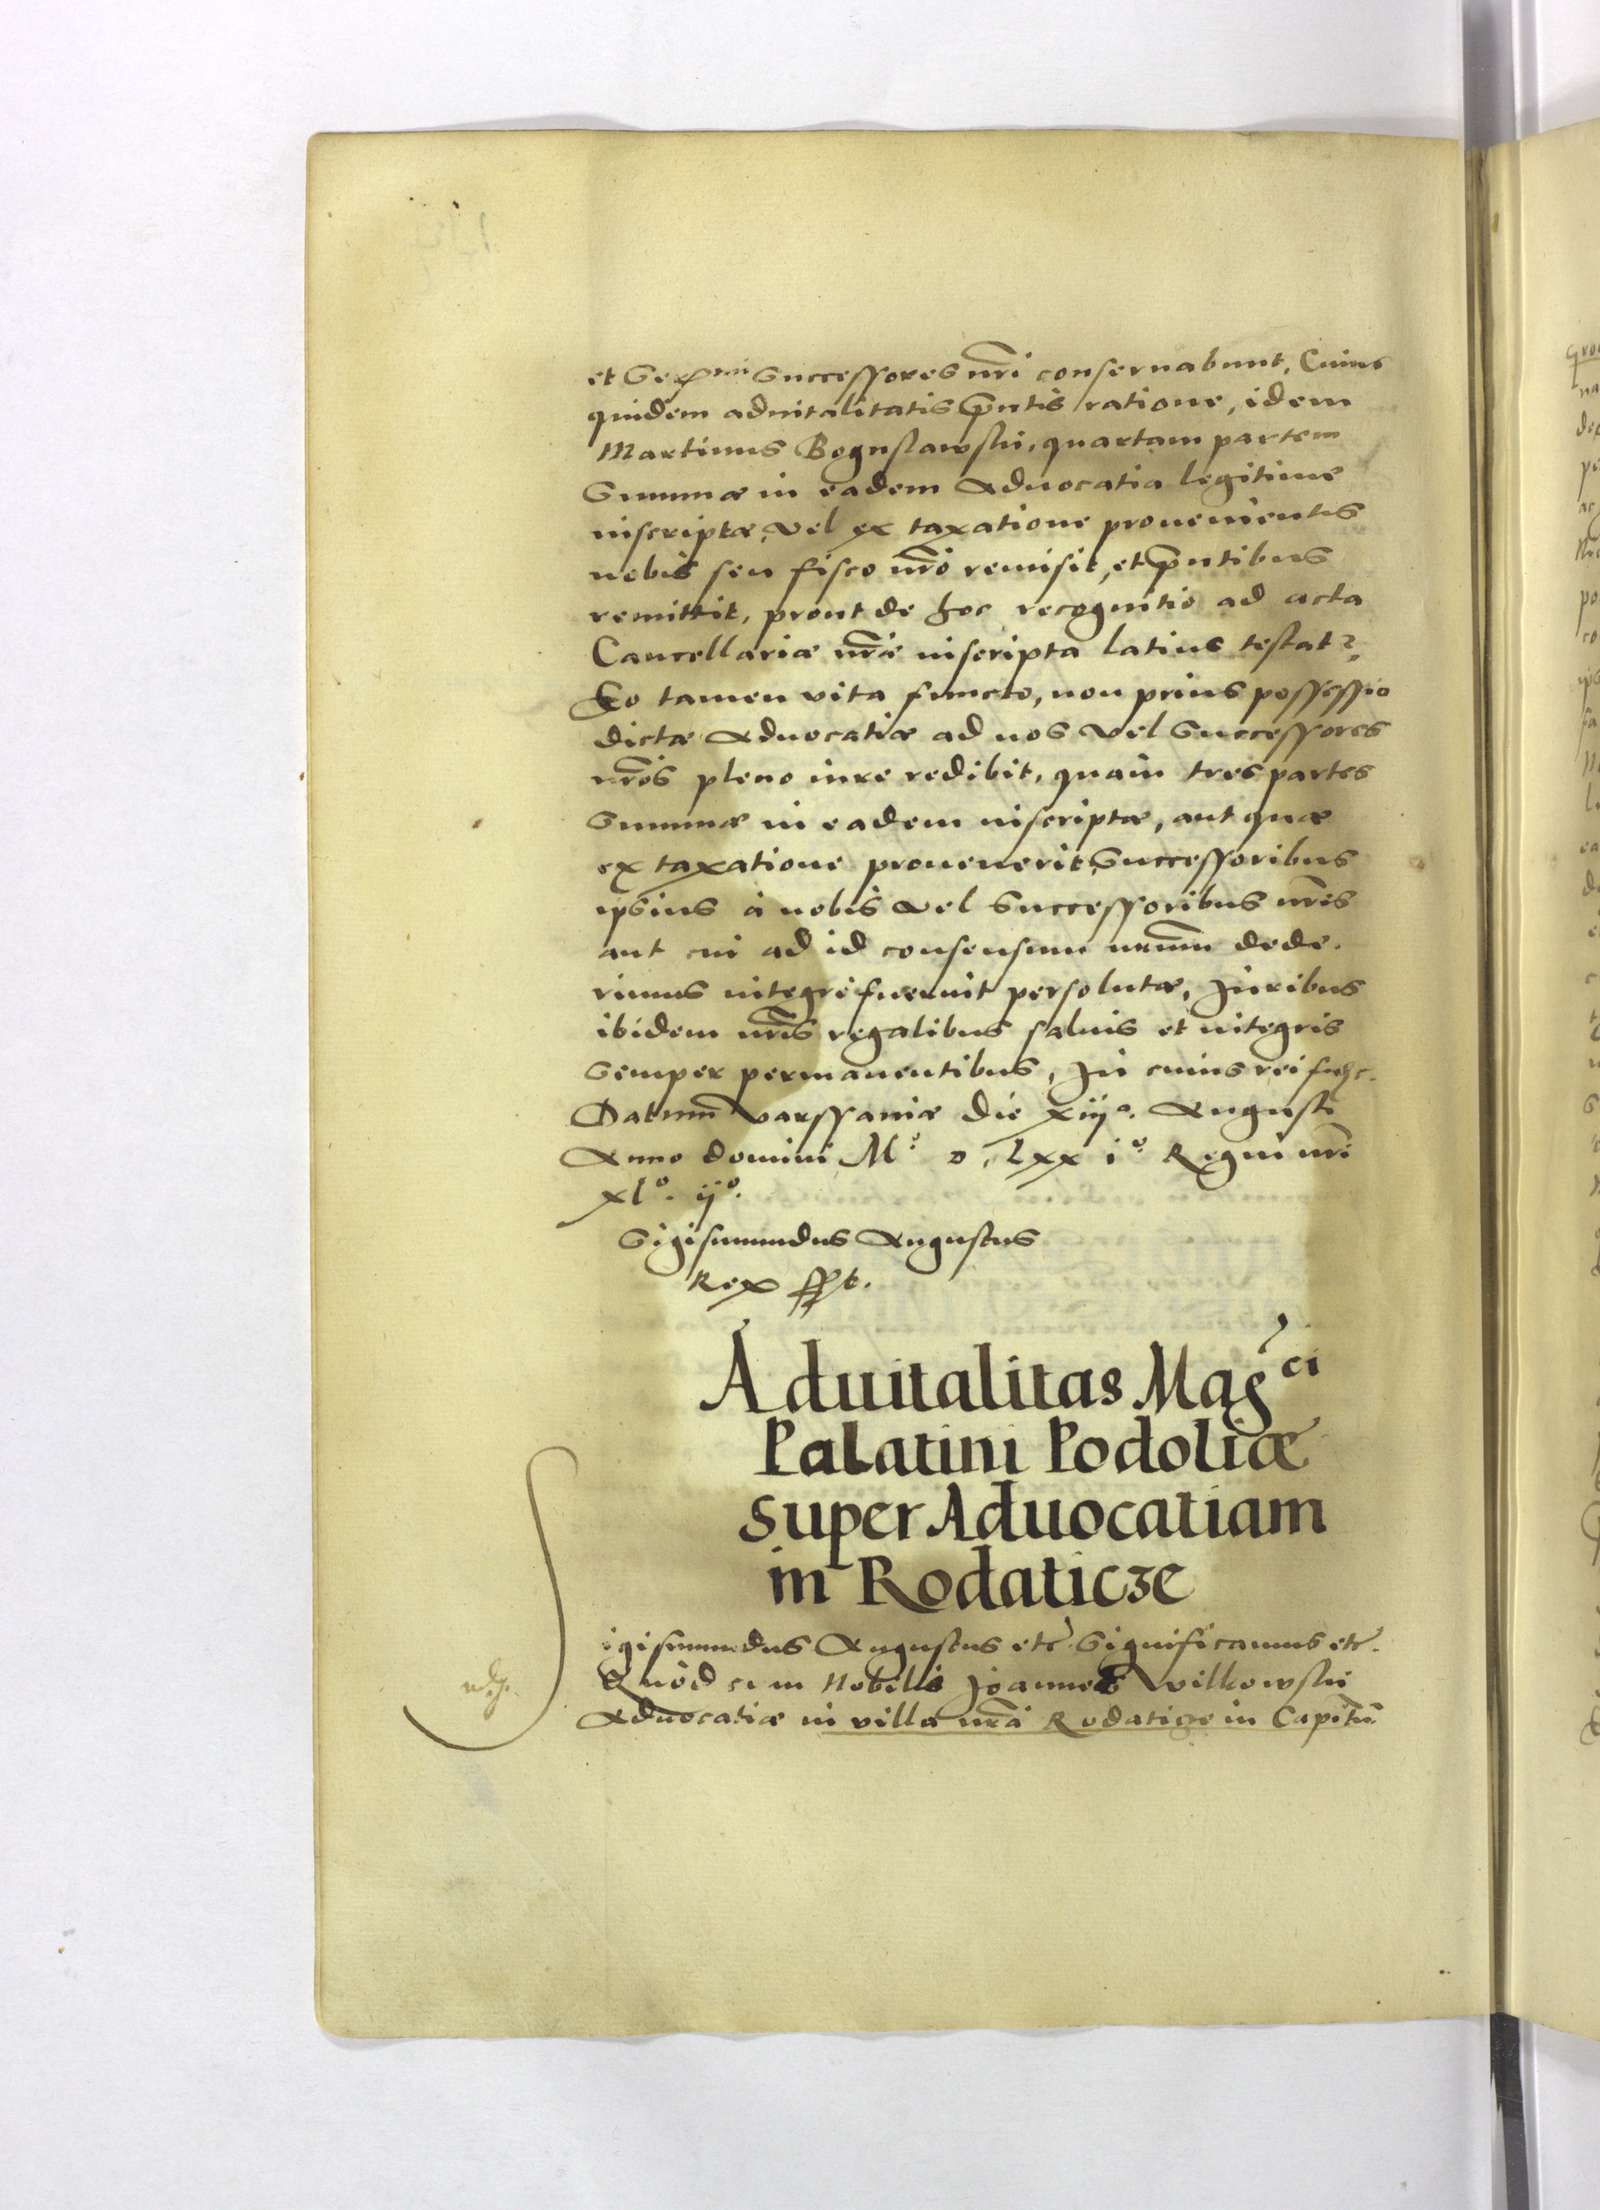 et Ser^mi Successores nr̃i conseruabunt, Cuius
quidem aduitalitatis p̃ntis ratione, idem
Martinus Boguslawski, quartam partem
Summæ in eadem Aduocatia legitime
inscriptæ, vel ex taxatione prouenientis
nobis seu fisco nr̃o remisit, et p̃ntibus
remittit, prout de hoc recognitio ad acta
Cancellariæ nr̃æ inscripta latius testat̃,
Eo tamen vita functo, non prius possessio
dictæ Aduocatiæ ad nos vel Successores
nr̃os pleno iure redibit, quam tres partes
Summæ in eadem inscriptæ, aut quæ
ex taxatione prouenerit, Successoribus
ipsius à nobis vel Successoribus nr̃is
aut cui ad id consensum nr̃um dede.
rimus integrè fuerint persolutæ, Juribus
ibidem nr̃is regalibus saluis et integris
semper permanentibus, In cuius rei fidẽ.
Datum Varssauiæ die xiijᵃ. Augusti
Anno domini Mᵒ D, Lxx iᵒ Regni nr̃i
xlᵒ. ijᵒ.
Sigismundus Augustus
Rex sspt.
Aduitalitas Mag^ci
Palatini Podoliæ
super Aduocatiam
in Rodaticze
Sigismundus Augustus etc̃. Significamus etc̃.
Quod cum Nobilis Joannes Wilkowski
Aduocatiæ in villa nr̃a Rodaticze in Capitũ